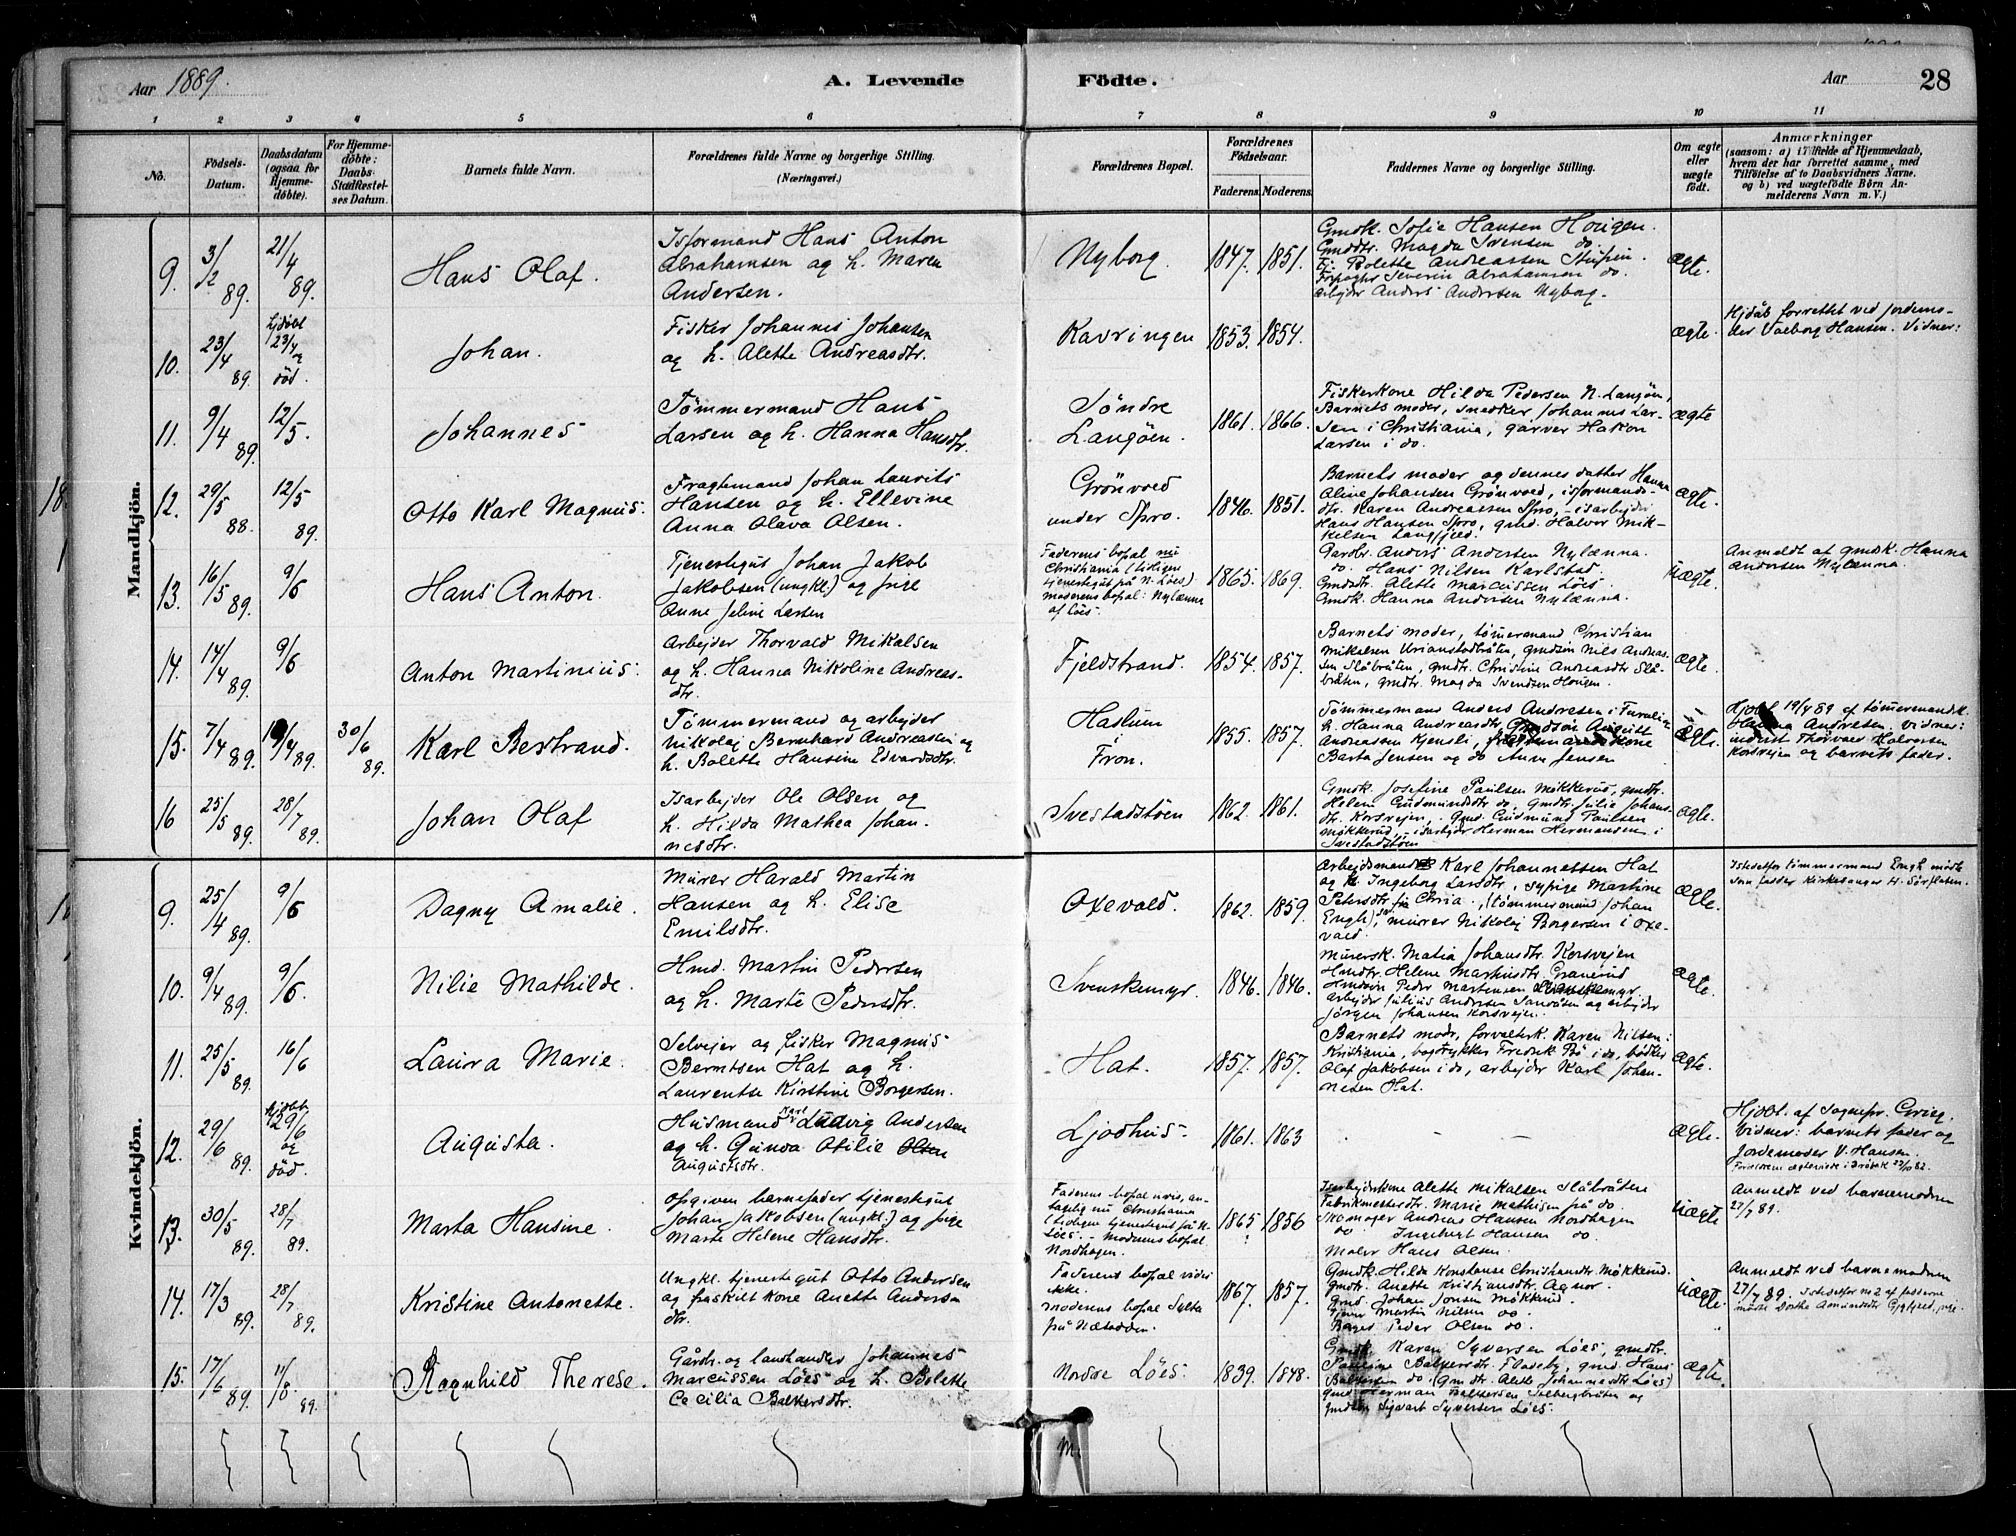 Aar 1889.
A. Levende
Födte.
Aar
28
1
2
3
4
5
6
7
8
9
10
11
No.
Födsels-
Datum.
Daabsdatum
(ogsaa for
Hjemme-
döbte).
For Hjemme-
döbte:
Daabs-
Stadfæstel-
ses Datum.
Barnets fulde Navn.
Forældrenes fulde Navne og borgerlige Stilling.
(Næringsvei.)
Forældrenes Bopæl.
Forældrenes
Födselsaar.
Faderens.
Moderens.
Faddernes Navne og borgerlige Stilling.
Om ægte
eller
uægte
födt.
Anmærkninger
(saasom: a) i Tilfælde af Hjemmedaab,
hvem der har forrettet samme, med
Tilföielse af to Daabsvidners Navne,
og b) ved uægtefödte Börn An-
melderens Navn m. V.)
Mandkjön.
9.
3/2 89.
21/4 89.
Hans Olaf.
Isformand Hans Anton
Abrahamsen og h. Maren
Andersen.
Nyborg.
1847.
1851.
Gmdk. Sofie Hansen Hougen.
Gmddtr. Magda Svensen do.
Pj. Bolette Andreassen
Severin Abrahamsen do.
Arbejder Anders Andersen Nyborg.
ægte.
10.
23/4 89.
23/4 og
död.
Johan.
Fisker Johannis Johansen
og h. Alette Andreasdtr.
Kavringen
1853.
1854.
ægte.
Hjdåb forrettet ved Jordemo-
der Valborg Hansen. Vidner:
11.
9/4 89.
12/5.
Johannes
Tömmermand Hans
Larsen og h. Hanna Hansdtr.
Söndre
Langöen.
1861.
1866.
Fiskerkone Hilda Pedersen N. Langöen,
Barnets moder, snedker Johannes Lar-
sen i Christiania, garver Hakon
Larsen i do.
ægte
12.
29/5 88.
12/5 89.
Otto Karl Magnus.
Fragtemand Johan Laurits
Hansen og h. Ellevine
Anna Olava Olsen.
Grönvold
under Spro.
1846.
1851.
Barnets moder og dennes datter Hanna
Aline Johansen Grönvold, isformands-
dtr. Karen Andreassen Spro, isarbejder
Hans Hansen Spro, gmd. Halvor Mik-
kelsen Langfjeld.
ægte.
13.
16/5 89.
9/6
Hans Anton.
Tjenestegut Johan Jakob
Jakobsen (ungkl.) og pige
Anne Jeline Larsen
Faderens bopæl nu
Christiania (tidligere
tjenestegut på N. Löes)
moderens bopæl: Nylænna
af Löes.
1865.
1869.
Gardbr. Anders Andersen Nylænna.
do. Hans Nilsen Karlstad.
Gmddtr. Alette Marcussen Löes.
Gmdk. Hanna Andersen Nylænna.
uægte.
Anmeldt af gmdk. Hanna
Andersen Nylænna.
14.
14/4 89.
9/6
Anton Martinius.
Arbejder Thorvald Mikalsen
og h. Hanna Nikoline Andreas-
dtr.
Fjeldstrand.
1854.
1857.
Barnets moder, tömermand Christian
Mikalsen, gmdsön Nils Andreas-
sen Slåbråten, gmdtr. Christine Andreasdtr Slå-
bråten, gmdtr. Magda Svendsen Hougen.
ægte.
15.
7/4 89.
19/4 89.
30/6 89.
Karl Bertrand.
Tömmermand og arbejder
Nikolaj Bernhard Andreassen og
h. Bolette Hansine Edvardsdtr.
Haslum
i
Fron.
1855.
1857.
Tömmermand Anders Andresen i
h. Hanna Andreasdtr, Gmdsön August
Andreassen Kjensli, kone
Berta Jensen og do Anne Jensen
ægte.
Hjdbt. 19/4 89 af tömermandk.
Hanna Andresen. Vidner:
inderst Thorvald Halvorsen
Korsvejen og barnets fader.
16
25/5 89.
28/7 89.
Johan Olaf
Isarbejder Ole Olsen og
h. Hilda Mathea Johan-
nesdtr.
Svestadstöen
1862.
1861.
Gmdk. Josefine Paulsen Mökkerud, gmdtr.
Helene Gudmundsdtr do, gmdtr. Julie Johans-
dtr. Korsvejen, gmd. Gudmund Paulsen
Mökkerud, isarbejder Herman Hermansen i
Svestadstöen
ægte.
Kvindekjön.
9.
25/4 89.
9/6
Dagny Amalie.
Murer Harald Martin
Hansen og h. Elise
Emilsdtr.
Oxevold.
1862.
1859.
Arbejdsmand Karl Johannessen Hat
og k. Ingeborg Larsdtr, sypige Martine
Petersdtr fra Chria., (tömmermand Johan
Engh), murer Nikolaj Borgersen i Oxe-
vold.
ægte.
Istedetfor tömmermand Engh mödte
som fadder kirkesanger H. Sörflaten.
10.
9/4 89.
9/6.
Nilie Mathilde.
Hmd. Martin Pedersen
og h. Marte Pedersdtr.
Svenskemyr.
1846.
1846.
Murersk. Matia Johansdtr. Korsvejen
Hmdtr. Helene Martinsdtr. Granerud
Hmdsön Peder Martensen Svenskemyr
arbejder Julius Andersen og arbejder
Jörgen Johansen Korsvejen.
ægte.
11.
25/5 89.
16/6
Laura Marie.
Selvejer og fisker Magnus
Berntsen Hat og h.
Laurentse Kirstine Borgersen.
Hat.
1857.
1857.
Barnets moder, forvalterk. Karen Nilsen i
Kristiania, bogtrykker Fredrik Bö i do, bödker
Olaf Jakobsen i do, arbejder Karl Johan-
nesen Hat.
ægte.
12.
29/6 89.
hjdöbt
29/6
og
död.
Augusta.
Husmand Karl Ludvig Andersen
og h. Gunda Otilie Olsen
Augustsdtr.
Ljodhus.
1861.
1863
ægte.
Hjdbt. af Sognepr. Grieg.
Vidner: barnets fader og
Jordemoder V. Hansen.
Forældrene ægteviede i Dröbak 27/10 82.
13.
30/5 89.
28/7 89.
Marta Hansine.
Opgiven barnefader tjenestegut
Johan Jakobsen (ungkl.) og pige
Marte Helene Hansdtr.
Faderens bopæl uvis, an-
tagelig nu Christiania
(tidligere tjenestegut på N.
Löes. - Moderens bopæl
Nordhagen.
1865
1856
Isarbejderkone Alette Mikalsen Slåbråten
Fabrikmesterdtr. Marie Mathisen på do.
Skomager Andreas Hansen Nordhagen
do Ingebregt Hansen do.
Maler Hans Olsen.
uægte
Anmeldt ved barnemoderen
27/7 89.
14.
17/3 89.
28/7 89.
Kristine Antonette.
Ungkl. tjenestegut Otto Andersen
og fraskilt kone Anette Anders-
dtr.
Faderens bopæl vides
ikke.
Moderens bopæl Sylta
på Næsodden.
1867.
1857.
Gmdk. Hilda Konstanse Christiansdtr. Mökkerud.
gmdtr. Anette Kristiansdtr. Agnor.
gmd. Johan Jonsen Mökkerud.
Martin Nilsen do
Peder Olsen do.
uægte.
Anmeldt ved barnemoderen
27/7 89. Istedetfor no 2 af fadderne
mödte Dorthe Amundsdtr
15.
17/6 89.
11/8 89.
Ragnhild Therese.
Gårdbr. og landhandler Johannes
Marcussen Löes og h. Bolette
Cecilia Balkersdtr.
Nordre Löes.
1839.
1848.
Gmdk. Karen Syversen Löes, gmdtr.
Pauline Balkersdtr. Fladeby, gmd. Hans
Balkersen do (Gmdtr. Alette Johannesdtr Löes)
gmd Herman Balkersen Solbergbråten og
gmdsön Sigvart Syversen Löes.
ægte.
M.